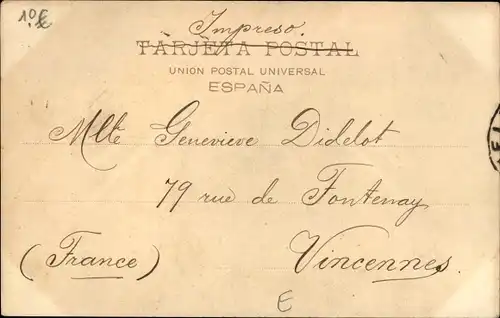 10€
Impreso.
TARJETA POSTAL
UNION POSTAL UNIVERSAL
ESPAÑA
Mlle Genevieve Didelot
79 rue de Fontenay
(France) Vincennes.
E